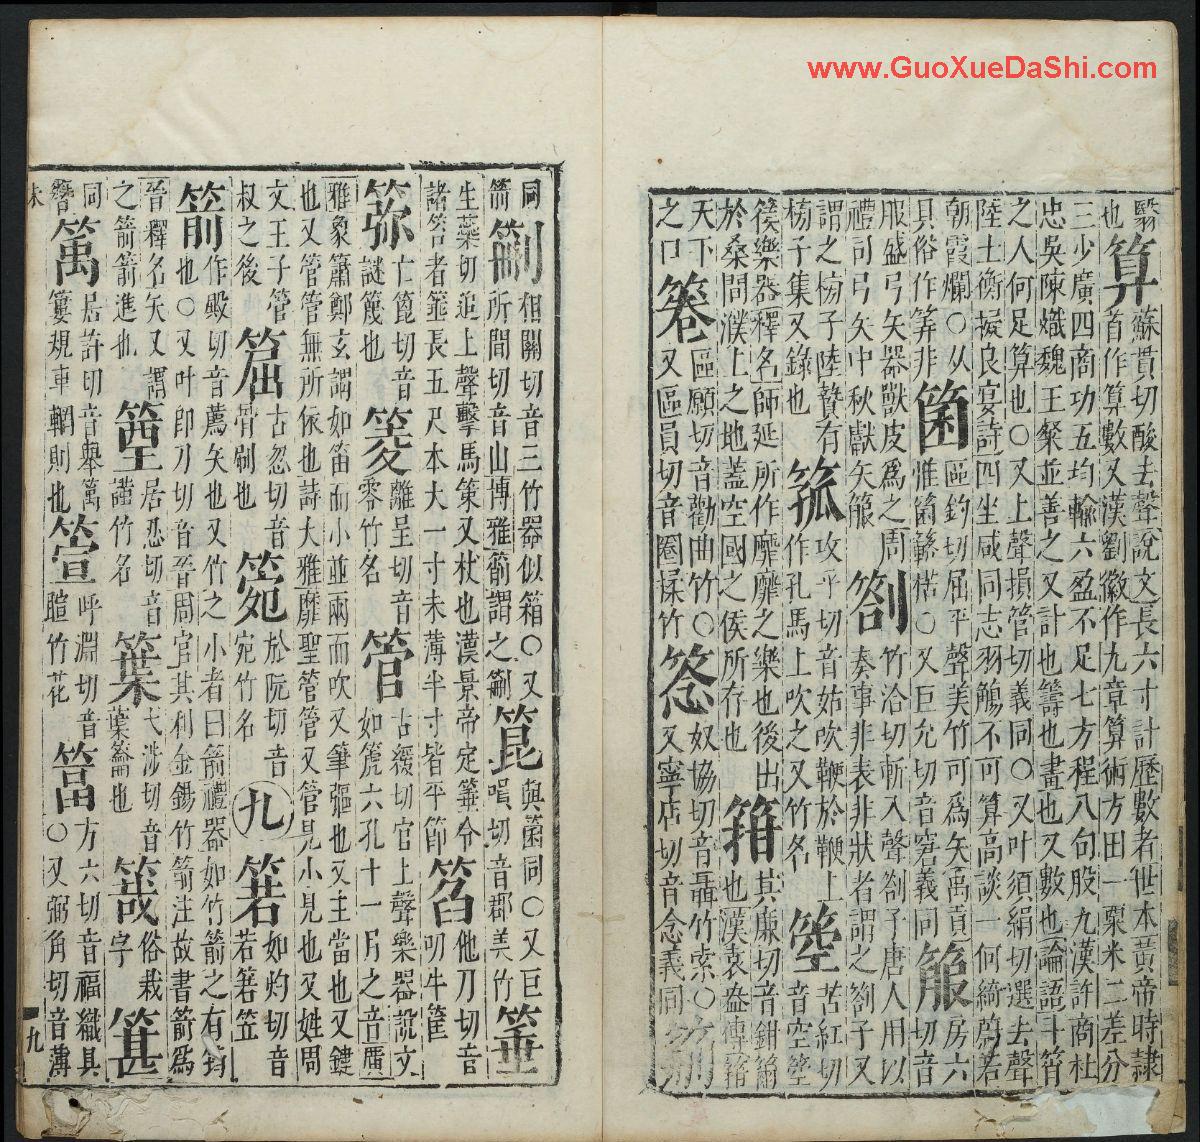 翳也算蘇貫切酸去聲說文長六寸計歷數者世本黃帝時隸首作算數又漢劉徽作九章算術方田一粟米二差分
三少廣四商功五均輸六盈不足七方程八句股九漢許商杜忠吳陳熾魏王粲並善之又計也籌也畫也又數也論語斗筲
之人何足算也○又上聲損管切義同○又叶須絹切選去聲陸士衡擬良宴詩四坐咸同志羽觴不可算高談一何綺蔚若
朝霞爛○从具俗作筭非箘區鈞切屈平聲美竹可爲矢禹貢惟箘簵楛○又巨允切音窘義同箙房六切音
服盛弓矢器獸皮爲之周禮司弓矢中秋獻矢箙劄竹洽切斬入聲劄子唐人用以奏事非表非狀者謂之劄子又
謂之榜子陸贄有榜子集又錄也箛攻乎切音姑吹鞭於鞭上作孔馬上吹之又竹名箜苦紅切音空箜
篌樂器釋名師延所作靡靡之樂也後出於桑間濮上之地蓋空國之侯所存也箝其廉切音鉗籋也漢袁盎傳箝
天下之口箞區願切音勸曲竹○又區員切音圈揉竹奴協切音聶竹索○又寧店切音念義同
同箭相關切音三竹器似箱○又所間切音山博雅箭謂之箟與箘同○又巨嗔切音郡美竹箠
生蘂切追上聲擊馬策又杖也漢景帝定箠令諸笞者箠長五尺本大一寸末薄半寸皆平節他刀切音叨牛筐
亡箆切音謎篾也離呈切音零竹名管古緩切官上聲樂器說文如篪六孔十二月之音廣
雅象簫鄭玄謂如笛而小並兩而吹又筆彄也又主當也又鍵也又管管無所依也詩大雅靡聖管管又管見小見也又姓周
文王子管叔之後古忽切音骨刷也於阮切音宛竹名九箬如灼切音若箬笠
箭作殿切音薦矢也又竹之小者曰箭禮器如竹箭之有筠也○又叶卽刀切音晉周官其利金錫竹箭注故書箭爲
晉釋名矢又謂之箭箭進也居恐切音謹竹名弋涉切音葉籥也俗栽字箕
同簪居許切音舉簍規車輞則也箮呼淵切音暄竹花方六切音福織具○又弼角切音薄
未
九
www.GuoXueDaShi.com